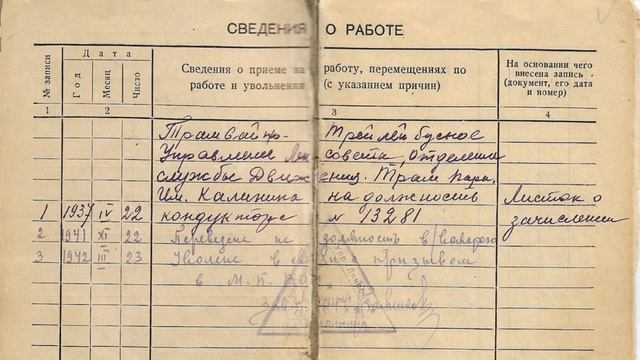 СВЕДЕНИЯ О РАБОТЕ
№ записи
Дата
Год
Месяц
Число
Сведения о приеме на работу, перемещениях по
работе и увольнении (с указанием причин)
На основании чего
внесена запись
(документ, его дата
и номер)
1 2 3 4
Трамвайно-Троллейбусное
Управление Совета, Отделение
службы Движения. Трам Парк
Им. Калинина на должность
1 1937 IV 22 кондуктора № 13281
Листок о
зачислении
2 1941 XI 22 Переведена на должность
3 1942 III 23 Уволена в призывом
в